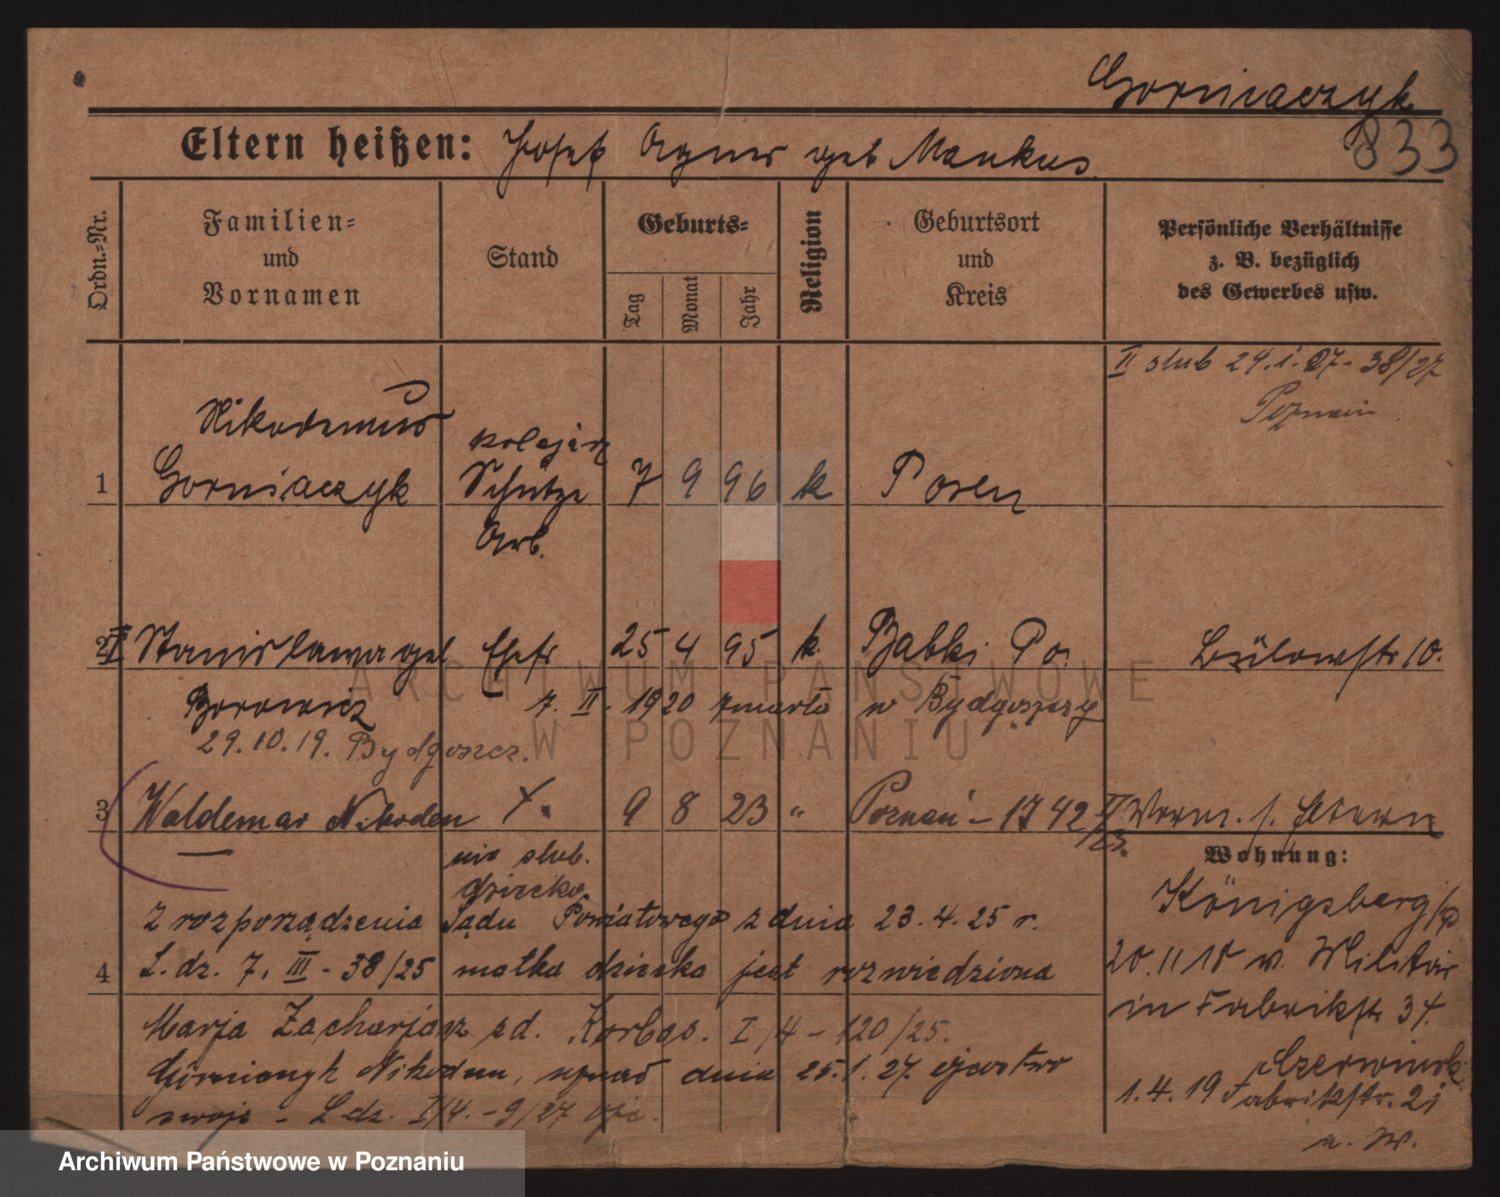 Gorniaczyk
833
Eltern heißen: Josef Agnes geb Mankus
Ordn.-Nr.
Familien-
und
Vornamen
Stand
Geburts-
Tag
Monat
Jahr
Religion
Geburtsort
und
Kreis
Persönliche Verhältnisse
z. B. bezüglich
des Gewerbes usw.
II slub 24.1.27 - 38/27
Poznań
Nikodemus
kolejarz
1 Gorniaczyk Schütze 7 9 96 k Posen
Arb.
2 II Stanislawa geb Ehefr 25 4 95 k. Babki Po. Bülowstr 10.
Borowicz 7. II. 1920 zmarła w Bydgoszczy
29.10.19. Bydgoszcz.
3 Waldemar Nikodem 9 8 23 " Poznań - 1742 II/23.
nie slub.
dziecko
Wohnung:
Z rozporządzenia Sądu Powiatowego z dnia 23.4.25 r.
4 L. dz. 7. III - 38/25 matka dziecka jest rozwiedziona
Marja Zacharjasz sd. Korbas. I/4 - 120/25.
Górniaczyk Nikodem, uznał dnia 25.1.27. ojcostwo
swoje - L.dz. I/4. - 9/27
Königsberg/P.
20.11 18 v. Militär
in Fabrikstr 34.
1.4.19 Fabrikstr. 21
ARCHIWUM PAŃSTWOWE
W POZNANIU
Archiwum Państwowe w Poznaniu